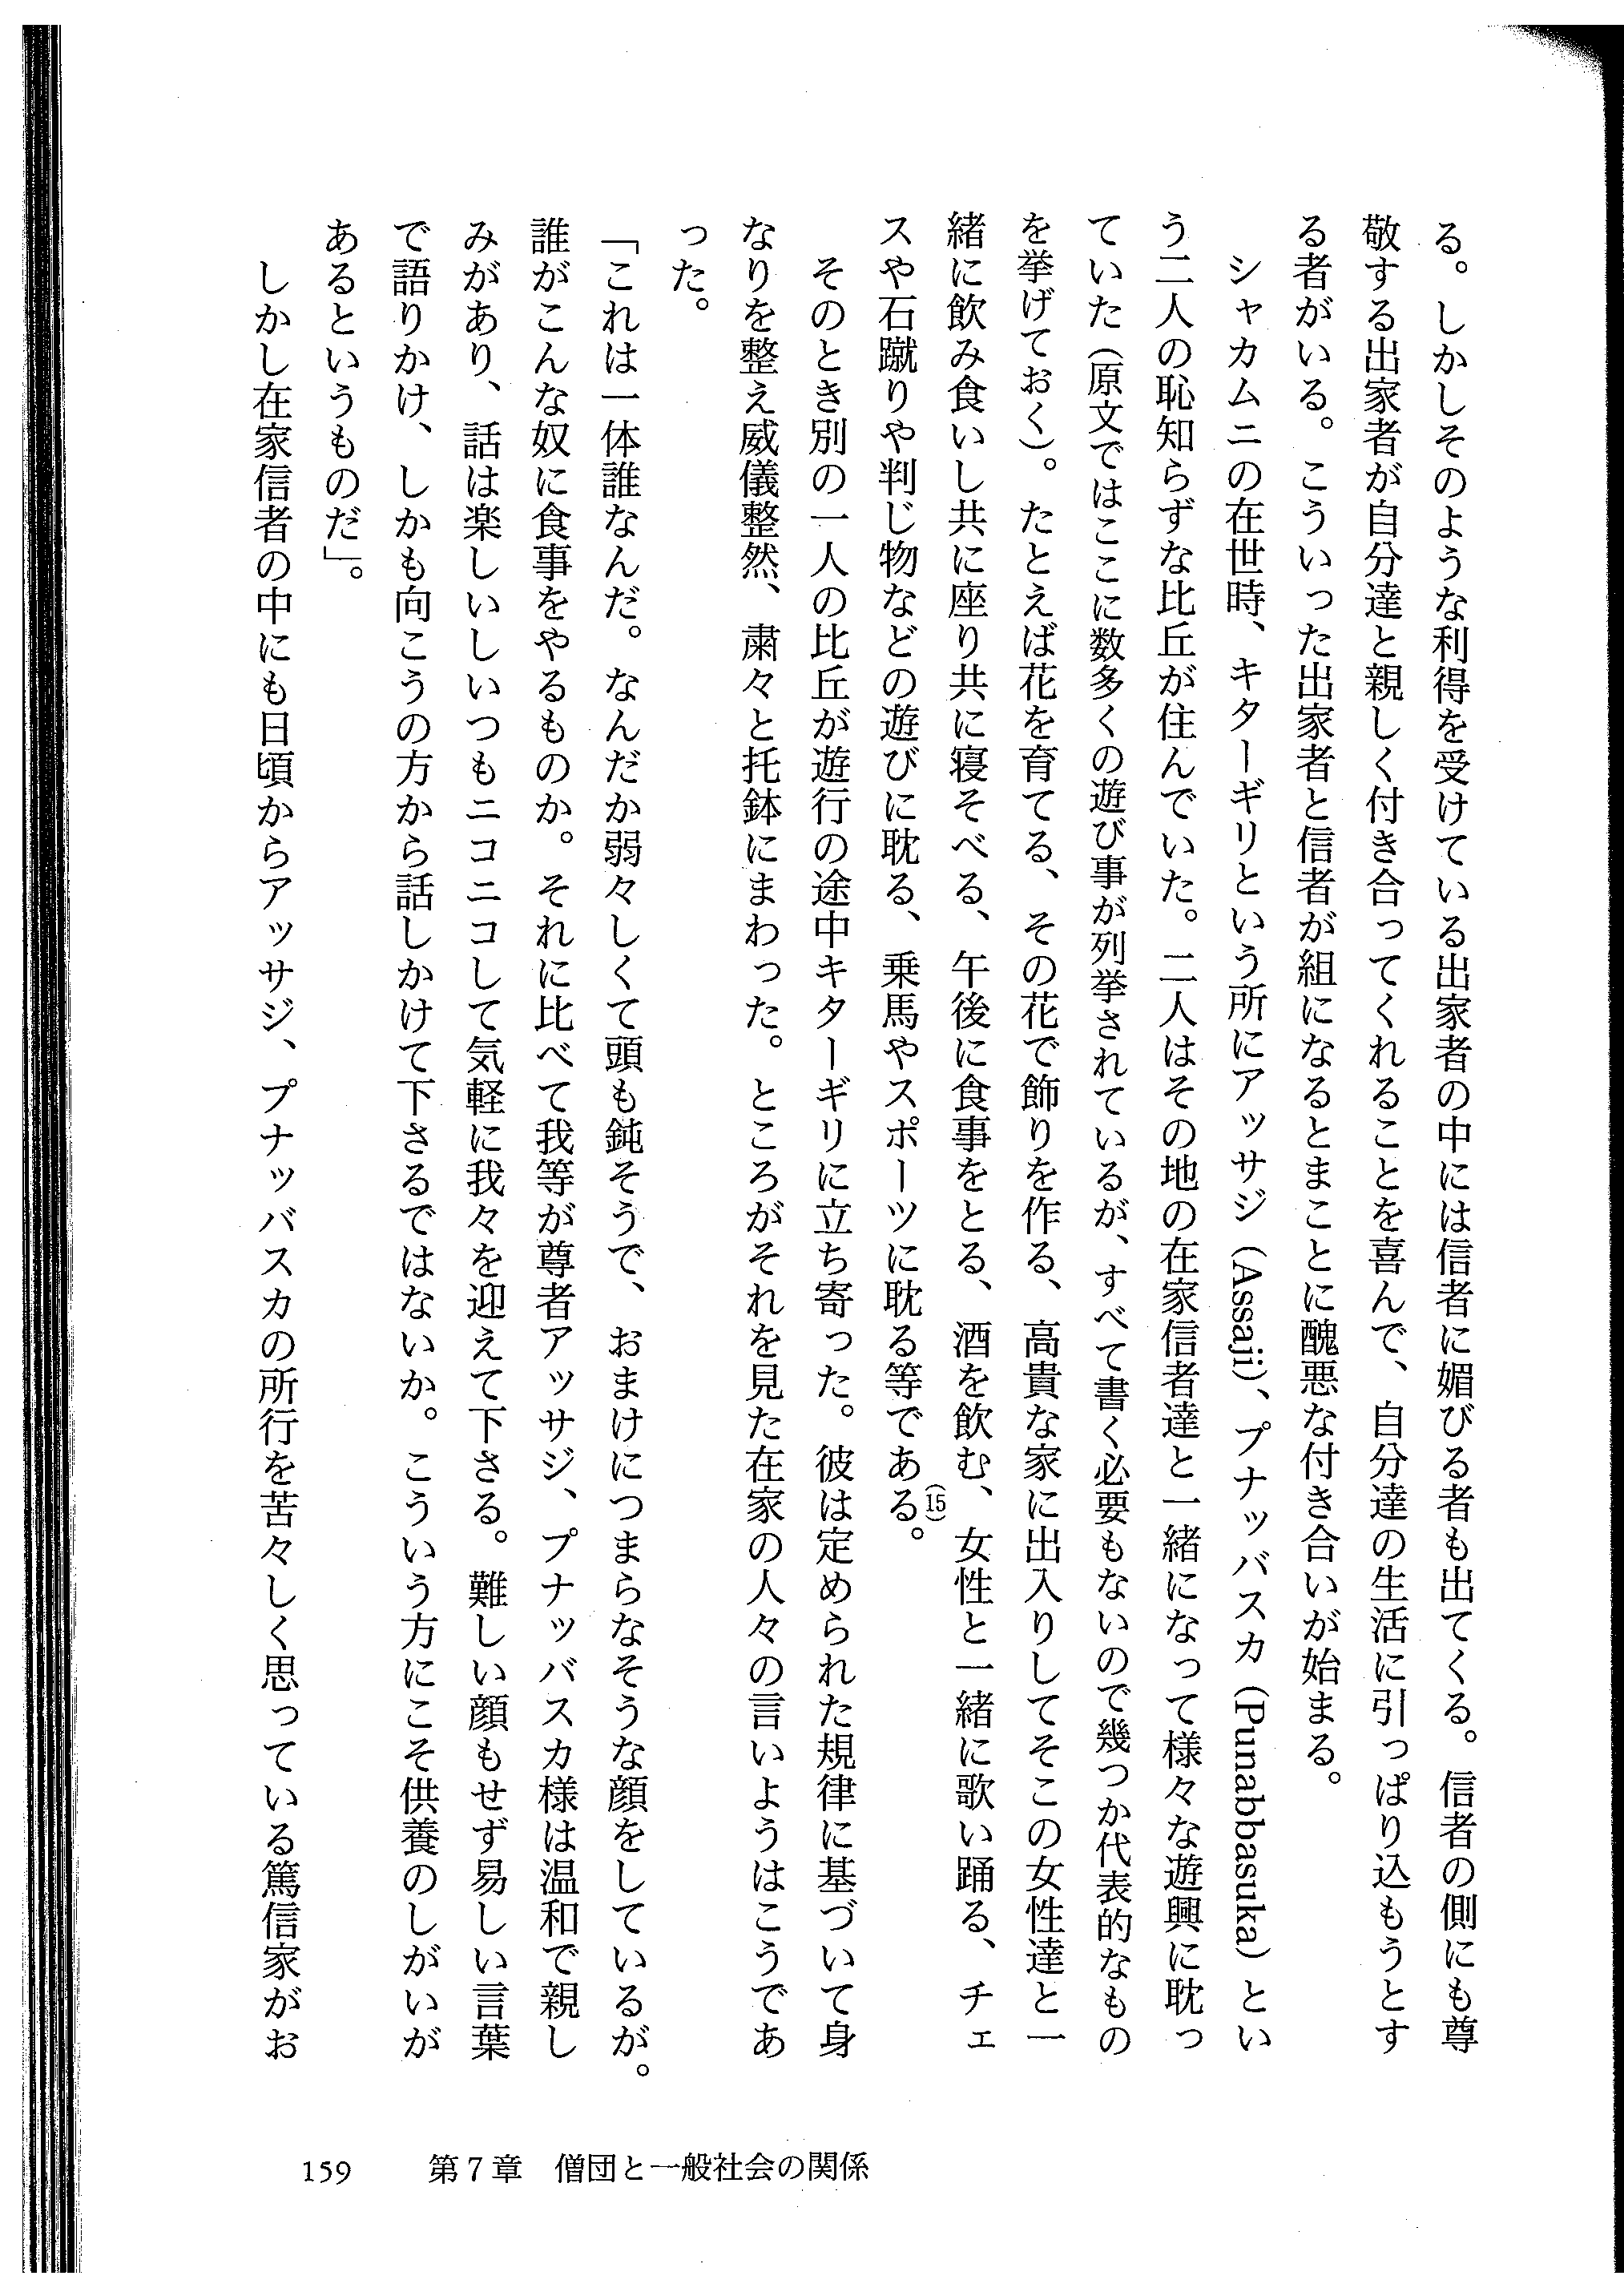 る。しかしそのような利得を受けている出家者の中には信者に媚びる者も出てくる。信者の側にも尊
敬する出家者が自分達と親しく付き合ってくれることを喜んで、自分達の生活に引っぱり込もうとす
る者がいる。こういった出家者と信者が組になるとまことに醜悪な付き合いが始まる。
シャカムニの在世時、キターギリという所にアッサジ（Assaji）、プナッバスカ（Punabbasuka）とい
う二人の恥知らずな比丘が住んでいた。二人はその地の在家信者達と一緒になって様々な遊興に耽っ
ていた（原文ではここに数多くの遊び事が列挙されているが、すべて書く必要もないので幾つか代表的なもの
を挙げておく）。たとえば花を育てる、その花で飾りを作る、高貴な家に出入りしてそこの女性達と一
緒に飲み食いし共に座り共に寝そべる、午後に食事をとる、酒を飲む、女性と一緒に歌い踊る、チェ
スや石蹴りや判じ物などの遊びに耽る、乗馬やスポーツに耽る等である(15)。
そのとき別の一人の比丘が遊行の途中キターギリに立ち寄った。彼は定められた規律に基づいて身
なりを整え威儀整然、粛々と托鉢にまわった。ところがそれを見た在家の人々の言いようはこうであ
った。
「これは一体誰なんだ。なんだか弱々しくて頭も鈍そうで、おまけにつまらなそうな顔をしているが。
誰がこんな奴に食事をやるものか。それに比べて我等が尊者アッサジ、プナッバスカ様は温和で親し
みがあり、話は楽しいしいつもニコニコして気軽に我々を迎えて下さる。難しい顔もせず易しい言葉
で語りかけ、しかも向こうの方から話しかけて下さるではないか。こういう方にこそ供養のしがいが
あるというものだ」。
しかし在家信者の中にも日頃からアッサジ、プナッバスカの所行を苦々しく思っている篤信家がお
159 第7章 僧団と一般社会の関係